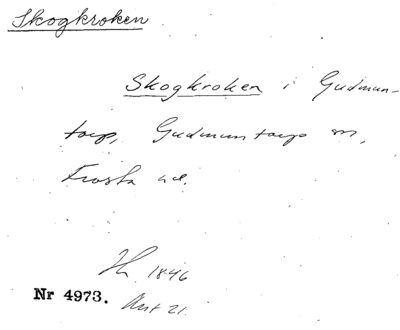 Skogkroken
Skogkroken i Gudmun-
torp, Gudmuntorps sn,
Frosta hd.
1846
Nr 4973. Akt 21